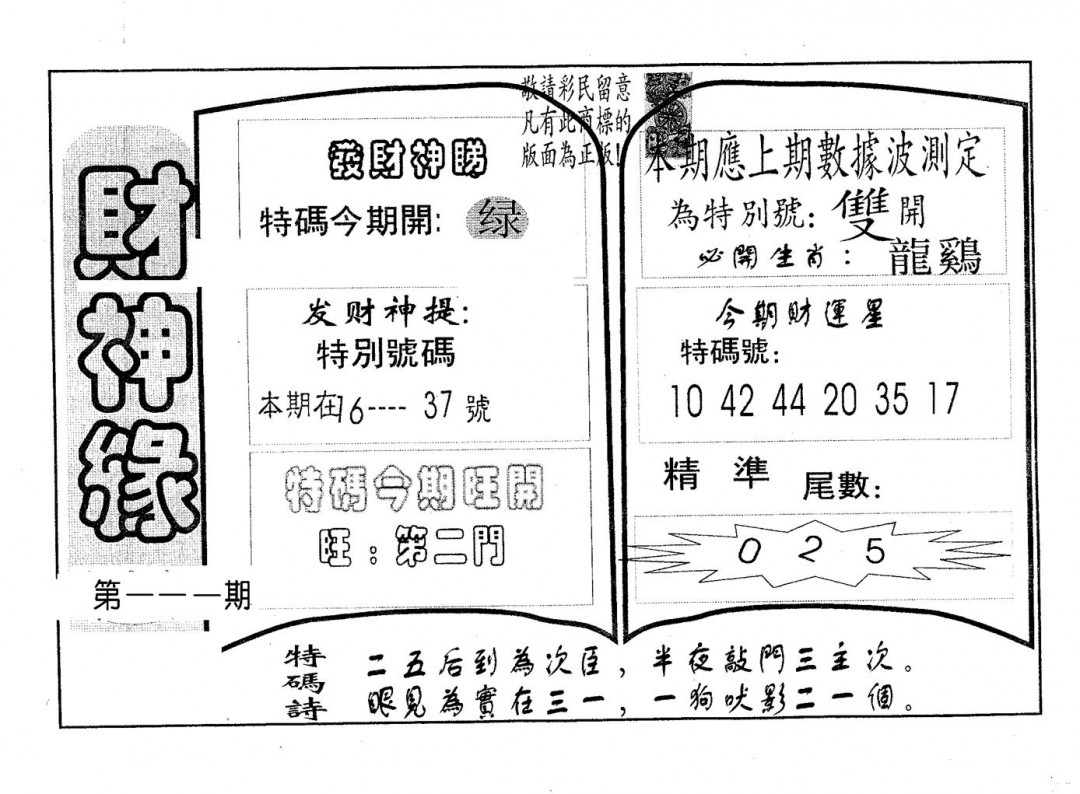 財神緣
第一一一期
敬請彩民留意
凡有此商標的
版面為正版!
發財神睇
特碼今期開: 绿
发财神提:
特別號碼
本期在16---- 37 號
特碼今期旺開
旺：第二門
本期應上期數據波測定
為特別號: 雙開
必開生肖： 龍鷄
今期財運星
特碼號:
10 42 44 20 35 17
精 準 尾數:
0 2 5
特碼詩
二五后到為次臣，半夜敲門三主次。
眼見為實在三一，一狗吠影二一個。